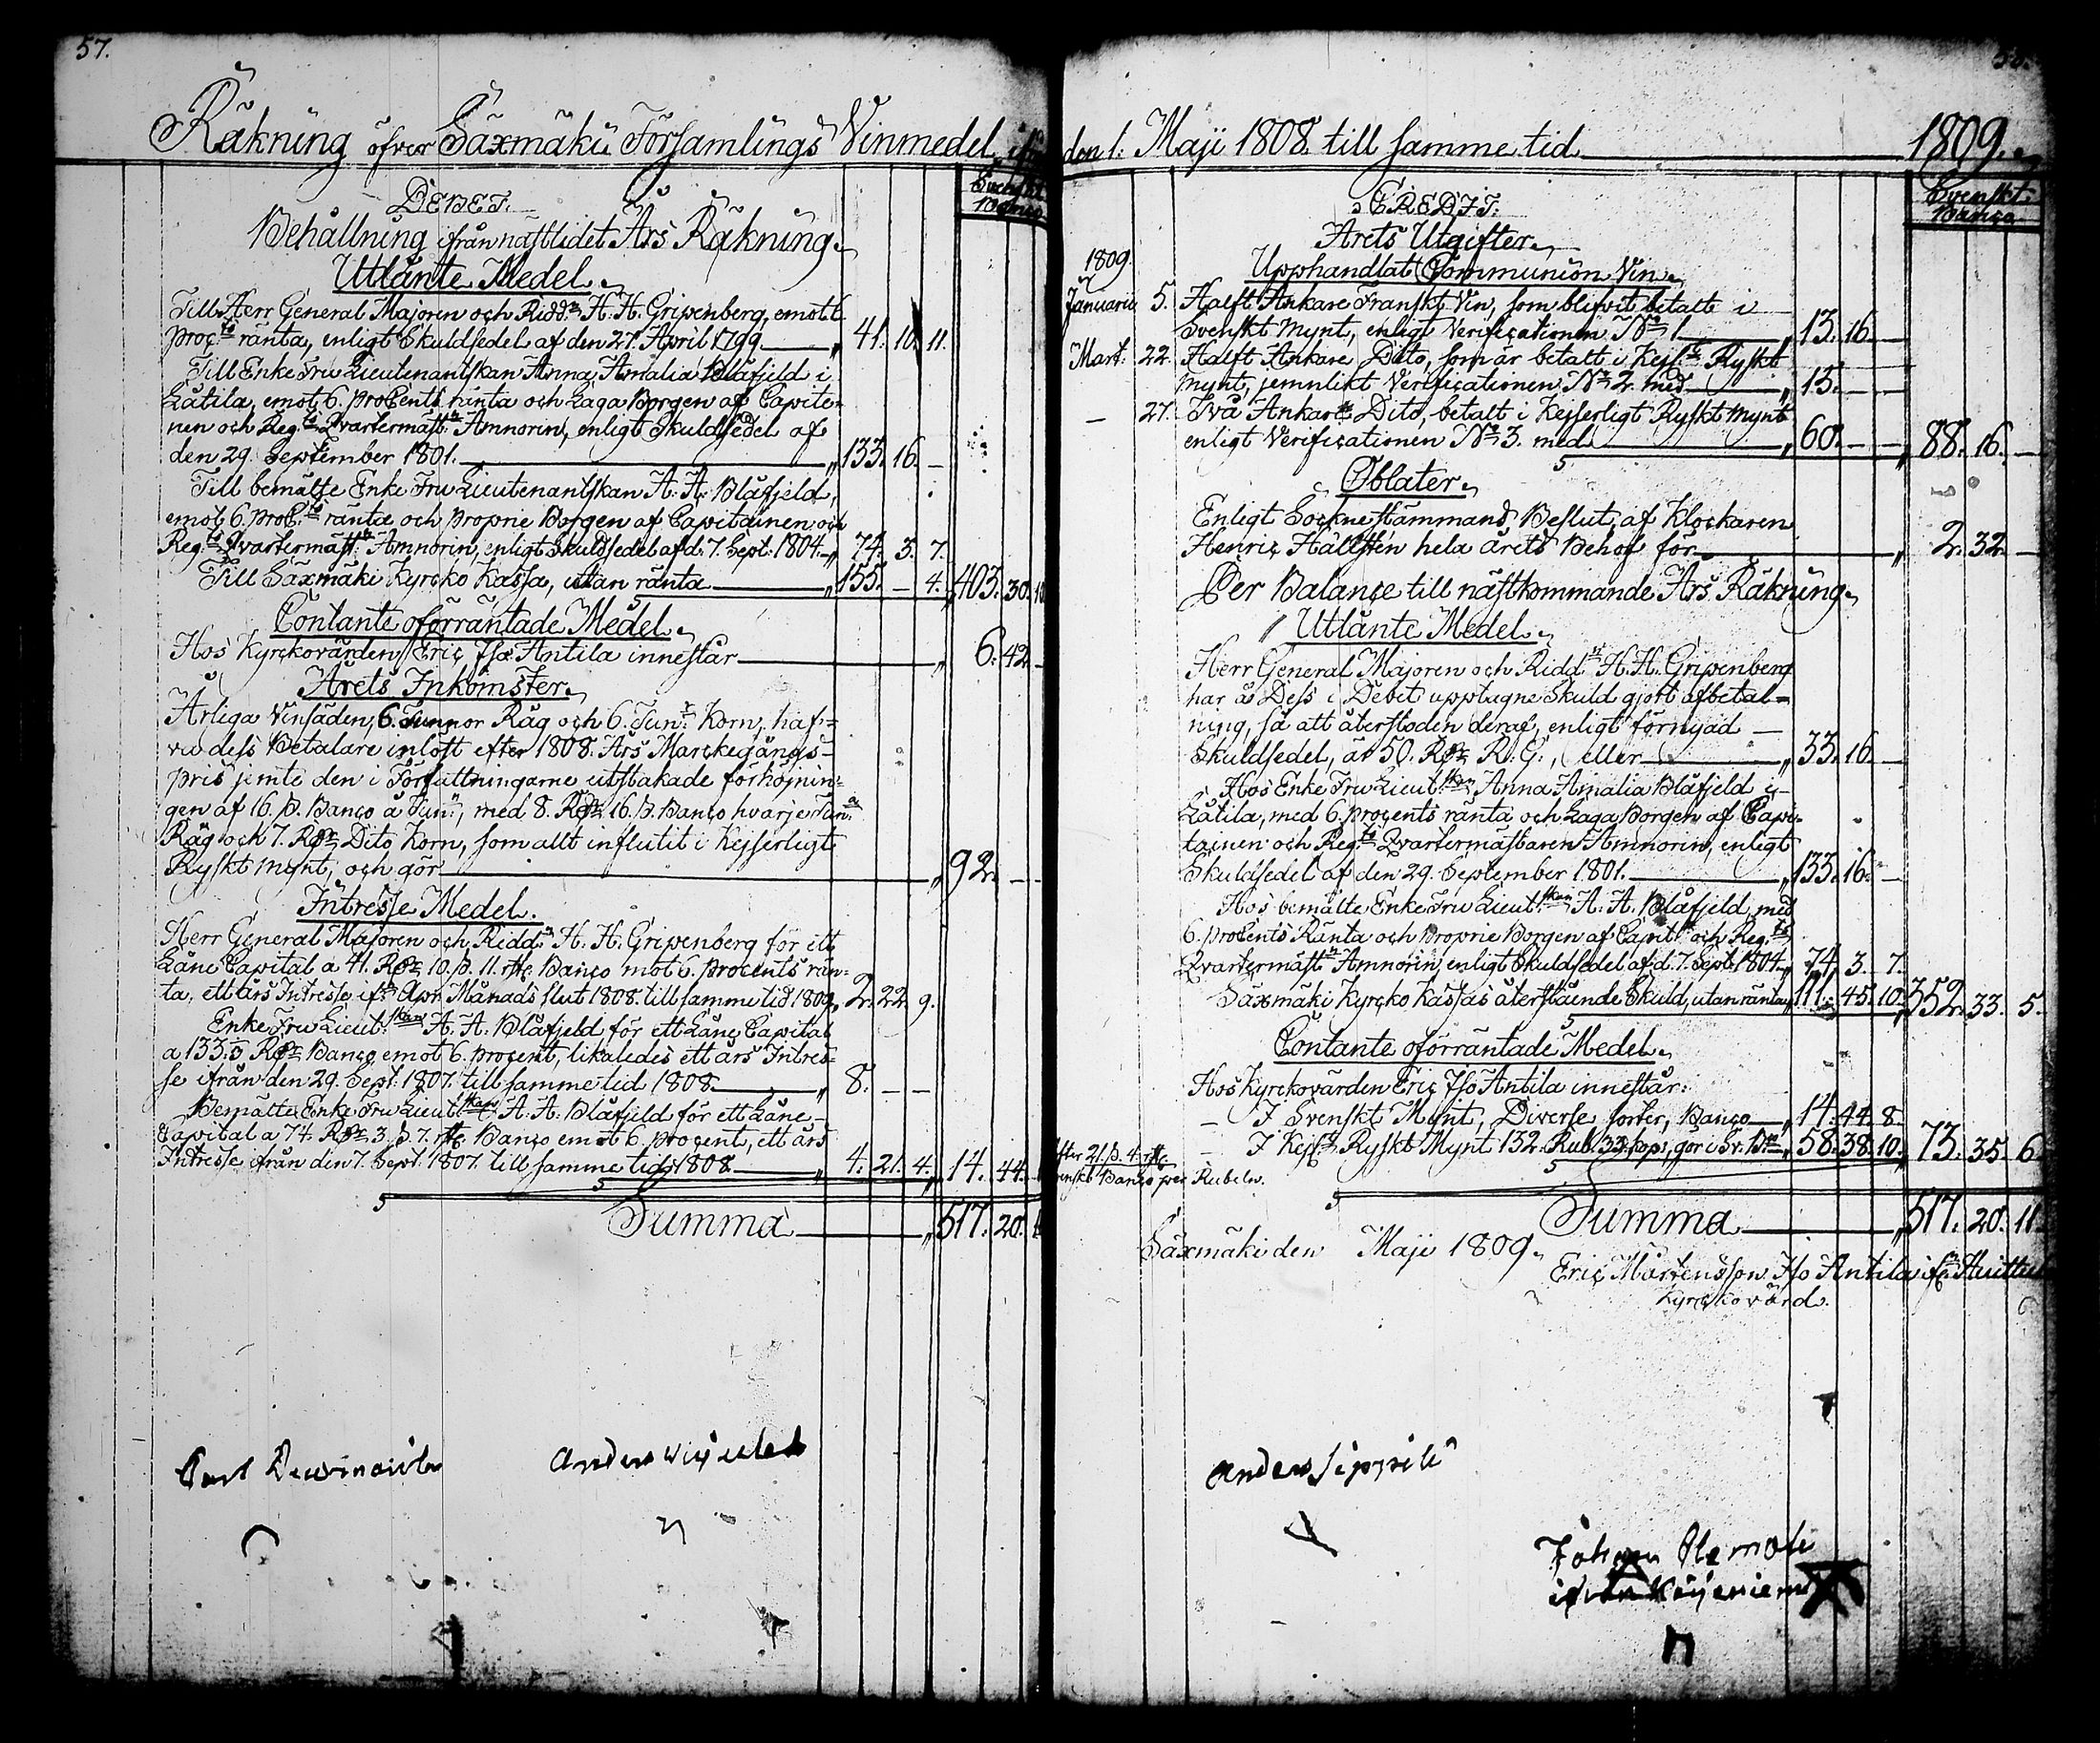 57.
Räkning öfver Säxmäki Församlings Vinmedel ifrån
Svenskt
Banco
DEBET.
Behållning ifrån nästlidet Års Räkning.
Utlånte Medel.
Till Herr General Majoren och Ridd:n H. H. Gripenberg, emot 6
proc:ts ränta, enligt Skuldsedel af den 27. April 1799 „ 41. 10. 11.
Till Enke Fru Lieutenantskan Anna Amalia Blåfjeld i
Låtila, emot 6. proCents ränta och Laga Borgen af Capite-
nen och Reg:ts Qvartermäst:n Amnorin, enligt Skuldsedel af
den 29. September 1801. „ 133. 16. —
Till bemälte Enke Fru Lieutenantskan A. A. Blåfjeld,
emot 6. proC:ts ränta och proprie Borgen af Capitainen och
Reg:ts Qvartermäst:n Amnorin, enligt Skuldsedel af d. 7. Sept: 1804. „ 74. 3. 7.
Till Säxmäki Kyrcko Kassa, utan ränta „ 155. — 4. „ 403. 30. 10
Contante oförräntade Medel.
Hos Kyrckovärden Eric Iso Antila innestår „ 6. 42. —
Årets Inkomster.
Årliga Vinsäden, 6. Tunnor Råg och 6. Tun:r Korn, haf-
va dess Betalare inlöst efter 1808. Års Marckegångs-
pris jemte den i Författningarne utstakade förhöjnin-
gen af 16. ß. Banco a Tun:n, med 8. Rdr 16. ß. Banco hvarje Tun:a
Råg och 7. Rdr Dito Korn, som allt influtit i Kejserligt
Ryskt Mynt, och gör „ 92. — —
Intresse Medel.
Herr General Majoren och Ridd:n H. H. Gripenberg för ett
Låne Capital a 41. Rdr 10. ß. 11. rst. Banco mot 6. procents rän-
ta, ett års Intresse ifr: Apr: Månads slut 1808. till samme tid 1809. „ 2. 22. 9.
Enke Fru Lieut:skan A. A. Blåfjeld för ett Låne Capital
a 133.⅓ Rdr Banco emot 6. procent, likaledes ett års Intres-
se ifrån den 29. Sept: 1807. till samme tid 1808. „ 8. — —
Bemälte Enke Fru Lieut:skan A. A. Blåfjeld för ett Låne
Capital a 74. Rdr 3. ß. 7. rst. Banco emot 6. procent, ett års
Intresse ifrån den 7. Sept. 1807. till samme tid 1808 „ 4. 21. 4. „ 14. 44. 1
Summa „ 517. 20. 11
Anders
den 1. Maji 1808. till samme tid 1809.
Svenskt
Banco
CREDIT.
Årets Utgifter.
1809.
Upphandlat Communion Vin.
Januarii 5. Halft Ankare Franskt Vin, som blifvit betalt i
Svenskt Mynt, enligt Verificationen N:o 1 „ 13. 16. —
Mart: 22. Halft Ankare Dito, som är betalt i Kejs:t Ryskt
Mynt, jemnlikt Verificationen N:o 2. med „ 15. — —
— 27. Två Ankare Dito, betalt i Kejserligt Ryskt Mynt
enligt Verificationen N:o 3. med „ 60. — — „ 88. 16. —
Oblater.
Enligt Sockne stämmans Beslut, af Klockaren
Henric Hällstén hela årets Behof för „ 2. 32. —
Per Balance till nästkommande Års Räkning.
Utlånte Medel.
Herr General Majoren och Ridd:n H. H. Gripenberg
har å Dess i Debet upptagne Skuld gjort afbetal-
ning, så att återstoden deraf, enligt förnyad
Skuldsedel, är 50. Rdr R. G., eller „ 33. 16. —
Hos Enke Fru Lieut:skan Anna Amalia Blåfjeld i
Låtila, med 6. procents ränta och Laga Borgen af Capi-
tainen och Reg:ts Qvartermästaren Amnorin, enligt
Skuldsedel af den 29. September 1801. „ 133. 16. —
Hos bemälte Enke Fru Lieut:skan A. A. Blåfjeld med
6. proCents Ränta och proprie Borgen af Capit:n och Reg:ts
Qvartermäst:n Amnorin, enligt Skuldsedel af d. 7. Sept. 1804. „ 74. 3. 7.
Säxmäki Kyrcko Kassas återstående Skuld, utan ränta „ 111. 45. 10. „ 352. 33. 5.
Contante oförräntade Medel.
Hos Kyrckovärden Eric Iso Antila innestår.
— I Svenskt Mynt, Diverse sorter, Banco „ 14. 44. 8.
— I Kejs:t Ryskt Mynt 132. Rub. 33. kop:, gör i Sv. B:co „ 58. 38. 10. „ 73. 35. 6
efter 21. ß. 4. rst.
Svenskt Banco per Rubel.
Summa „ 517. 20. 11.
Säxmäki den Maji 1809.
Eric Mårtensson Iso Antila ifr:
Kyrckovärd.
Anders
Johan
ifrån